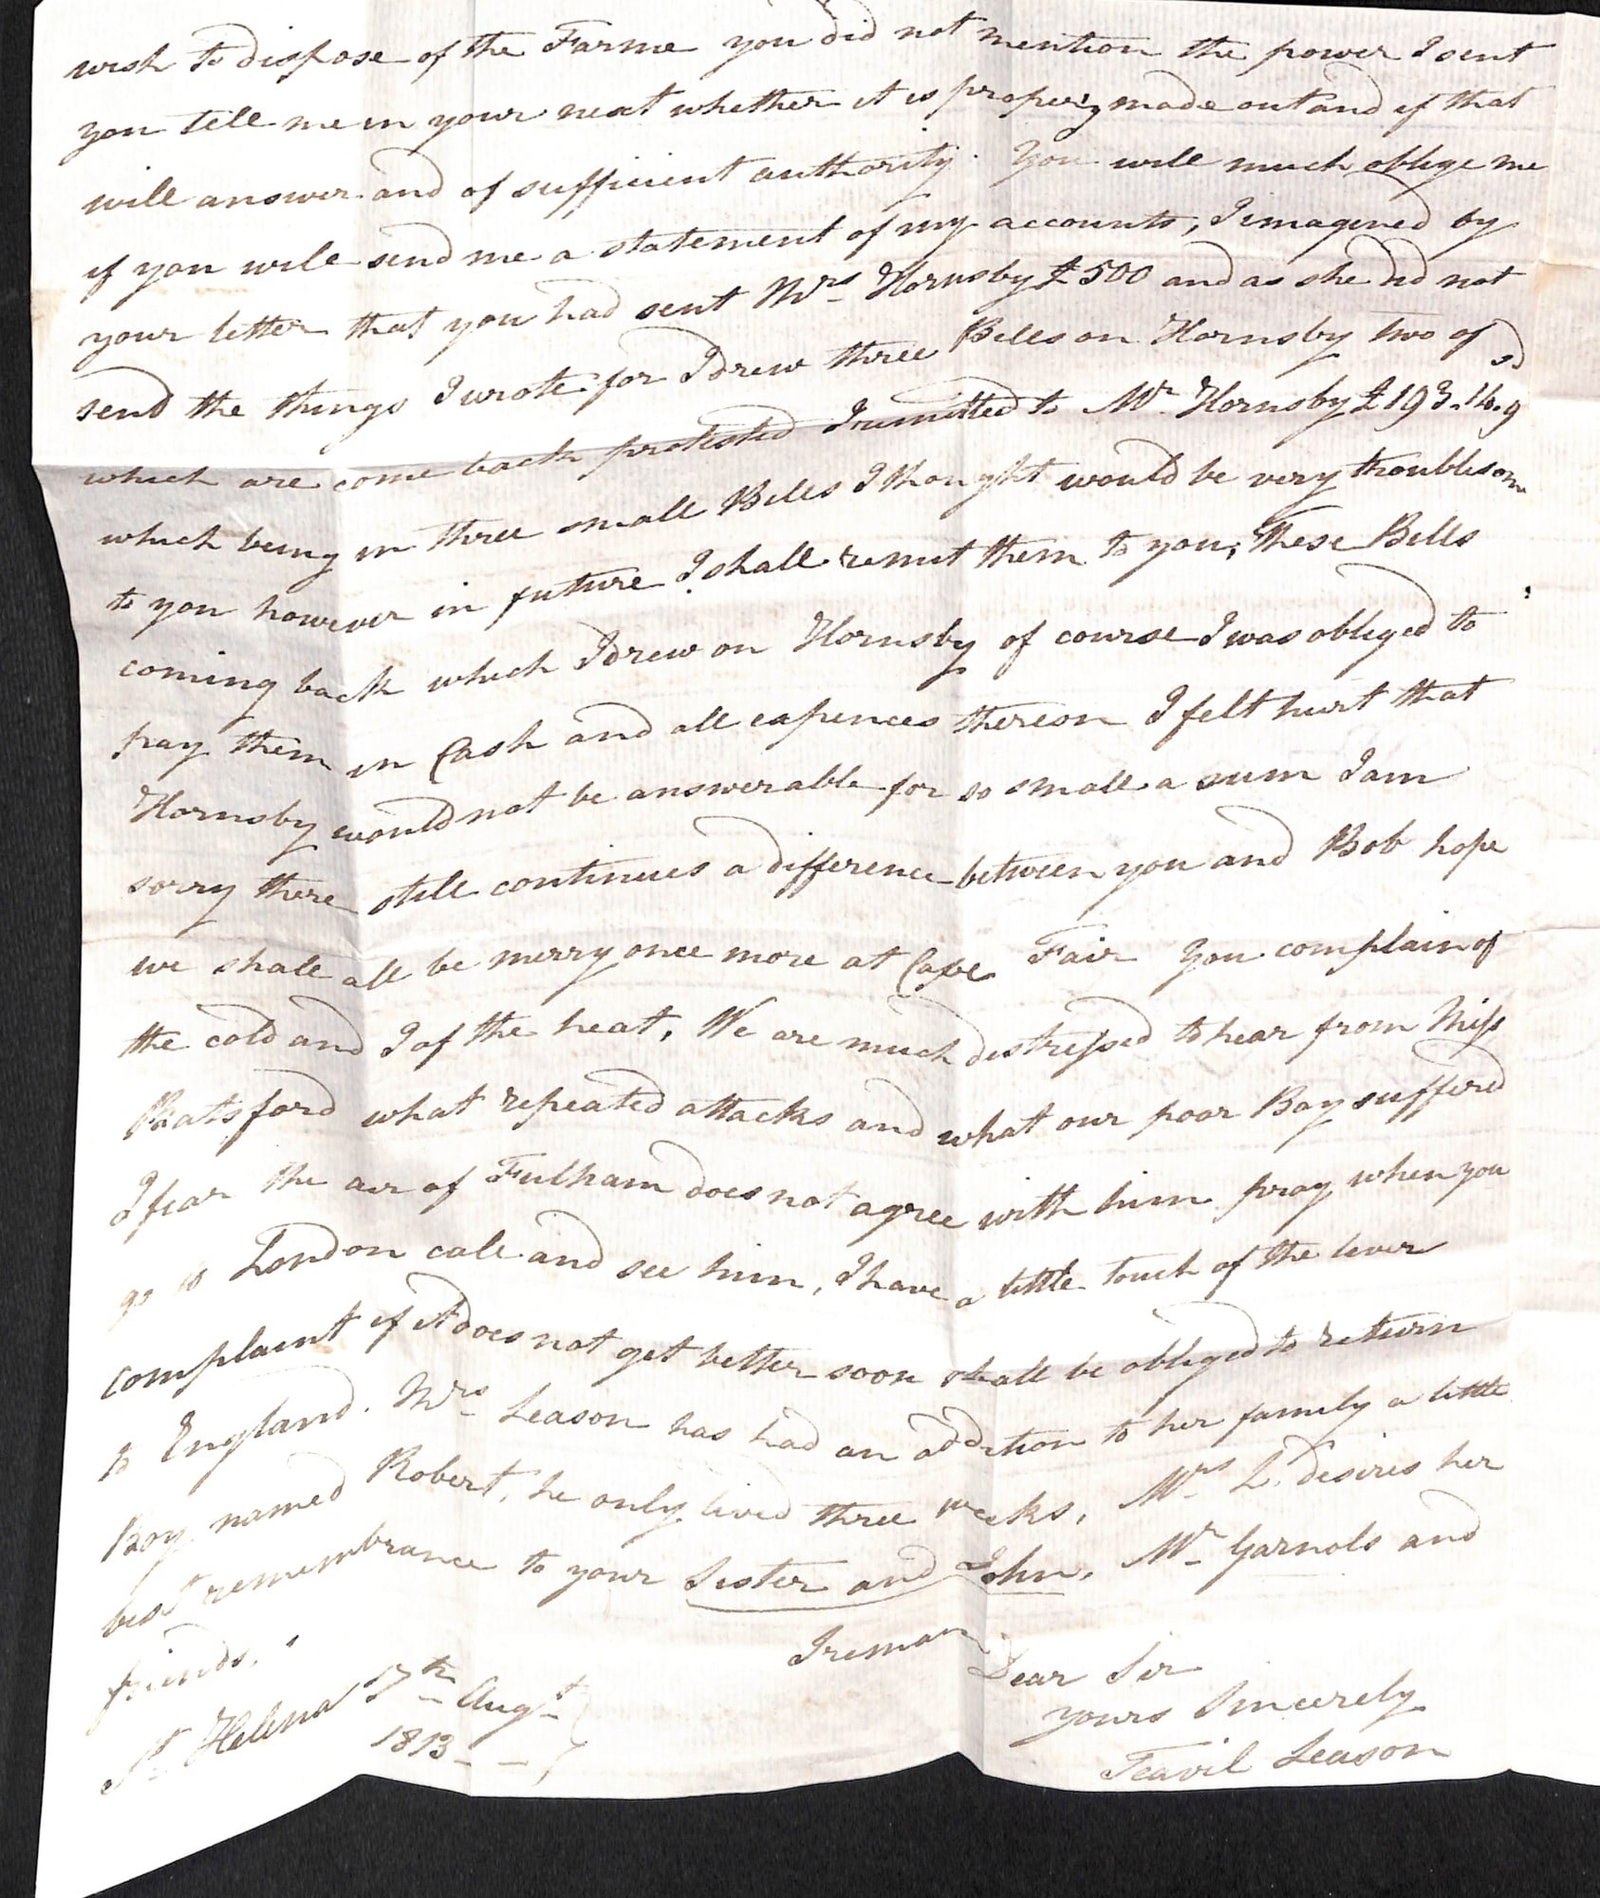 wish to dispose of the Farme you did not mention the power I sent
you tell me in your next whether it is propery made out and if that
will answer and of sufficient authority. You will much oblige me
if you will send me a statement of my accounts, I imagined by
your letter that you had sent Mrs Hornsby £500 and as she did not
send the things I wrote for I drew three Bills on Hornsby two of
which are come back protested I remitted to Mr Hornsby £193.14.9
which being in three small Bills I thought would be very troublesom
to you however in future I shall remit them to you, These Bills
coming back which I drew on Hornsby of course I was obliged to
pay them in Cash and all expences thereon I felt hurt that
Hornsby would not be answerable for so small a sum I am
sorry there still continues a difference between you and Bob hope
we shall all be merry once more at Cave Fair You complain of
the cold and I of the heat, We are much distressed to hear from Miss
Batsford what repeated attacks and what our poor Boy suffered
I fear the air of Fulham does not agree with him pray when you
go to London call and see him, I have a little touch of the liver
complaint if it does not get better soon shall be obliged to return
to England. Mrs Leason has had an addition to her family a little
Boy named Robert, he only lived three weeks, Mrs L. desires her
best remembrance to your Sister and John, Mr Garnols and
friends.
I remain
Dear Sir
yours Sincerely
Teavil Leason
St Helena 17th Augst
1813